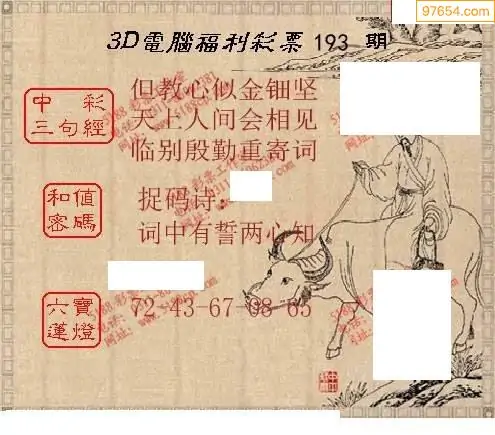 97654.com
3D電腦福利彩票 193 期
中彩三句經
但教心似金钿坚
天上人间会相见
临别殷勤重寄词
和值密碼
捉码诗:
词中有誓两心知
六寶蓮燈
72-43-67-08-65